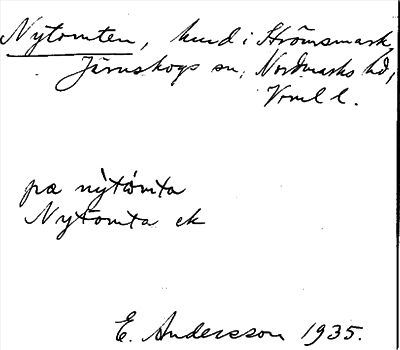 Nytomten, hmd i Strömsmark,
Järnskogs sn, Nordmarks hd,
Vrml l.
pa nỳtòmta
Nytomta ek
E. Andersson 1935.